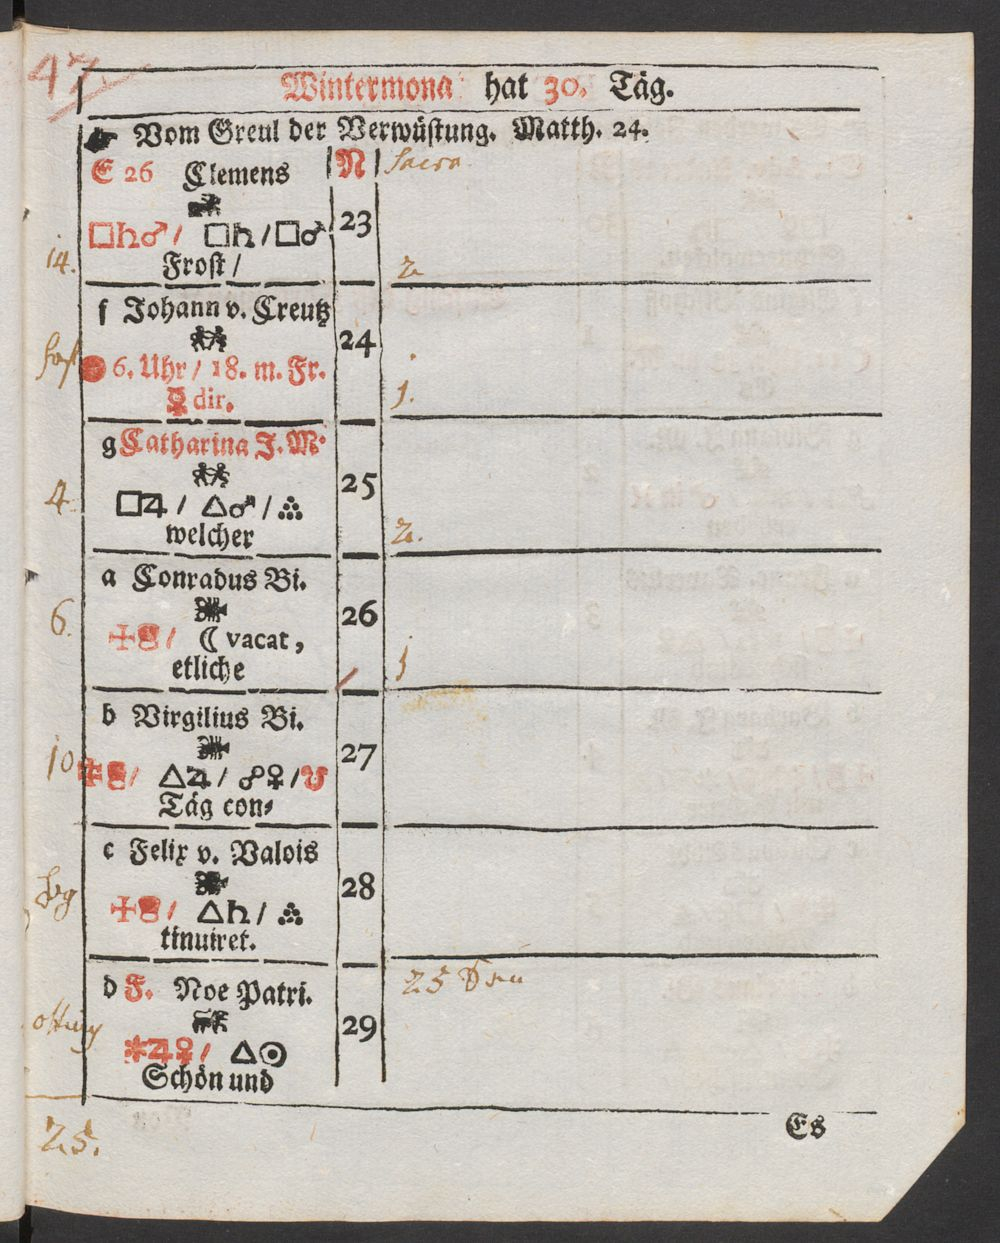 47.
Wintermona hat 30. Täg.
☛ Vom Greul der Verwüstung. Matth. 24.
E 26 Clemens N Sacra
□♄♂/ □♄/□♂ 23
14. Frost / 2
f Johann v. Creutz
24
● 6. Uhr / 18. m. Fr.
☿ dir. 1.
g Catharina J. M.
25
4. □♃ / △♂ / ∴
welcher 2.
a Conradus Bi.
6. 26
☩ / ☾ vacat,
etliche 1
b Virgilius Bi.
27
10 ☩ / △♃ / ☍♀ / ♉
Täg con⸗
c Felix v. Valois
28
☩ / △♄ / ∴
tinuiret.
25
d F. Noe Patri.
29
✱♃♀ / △☉
Schön und
Es
25.